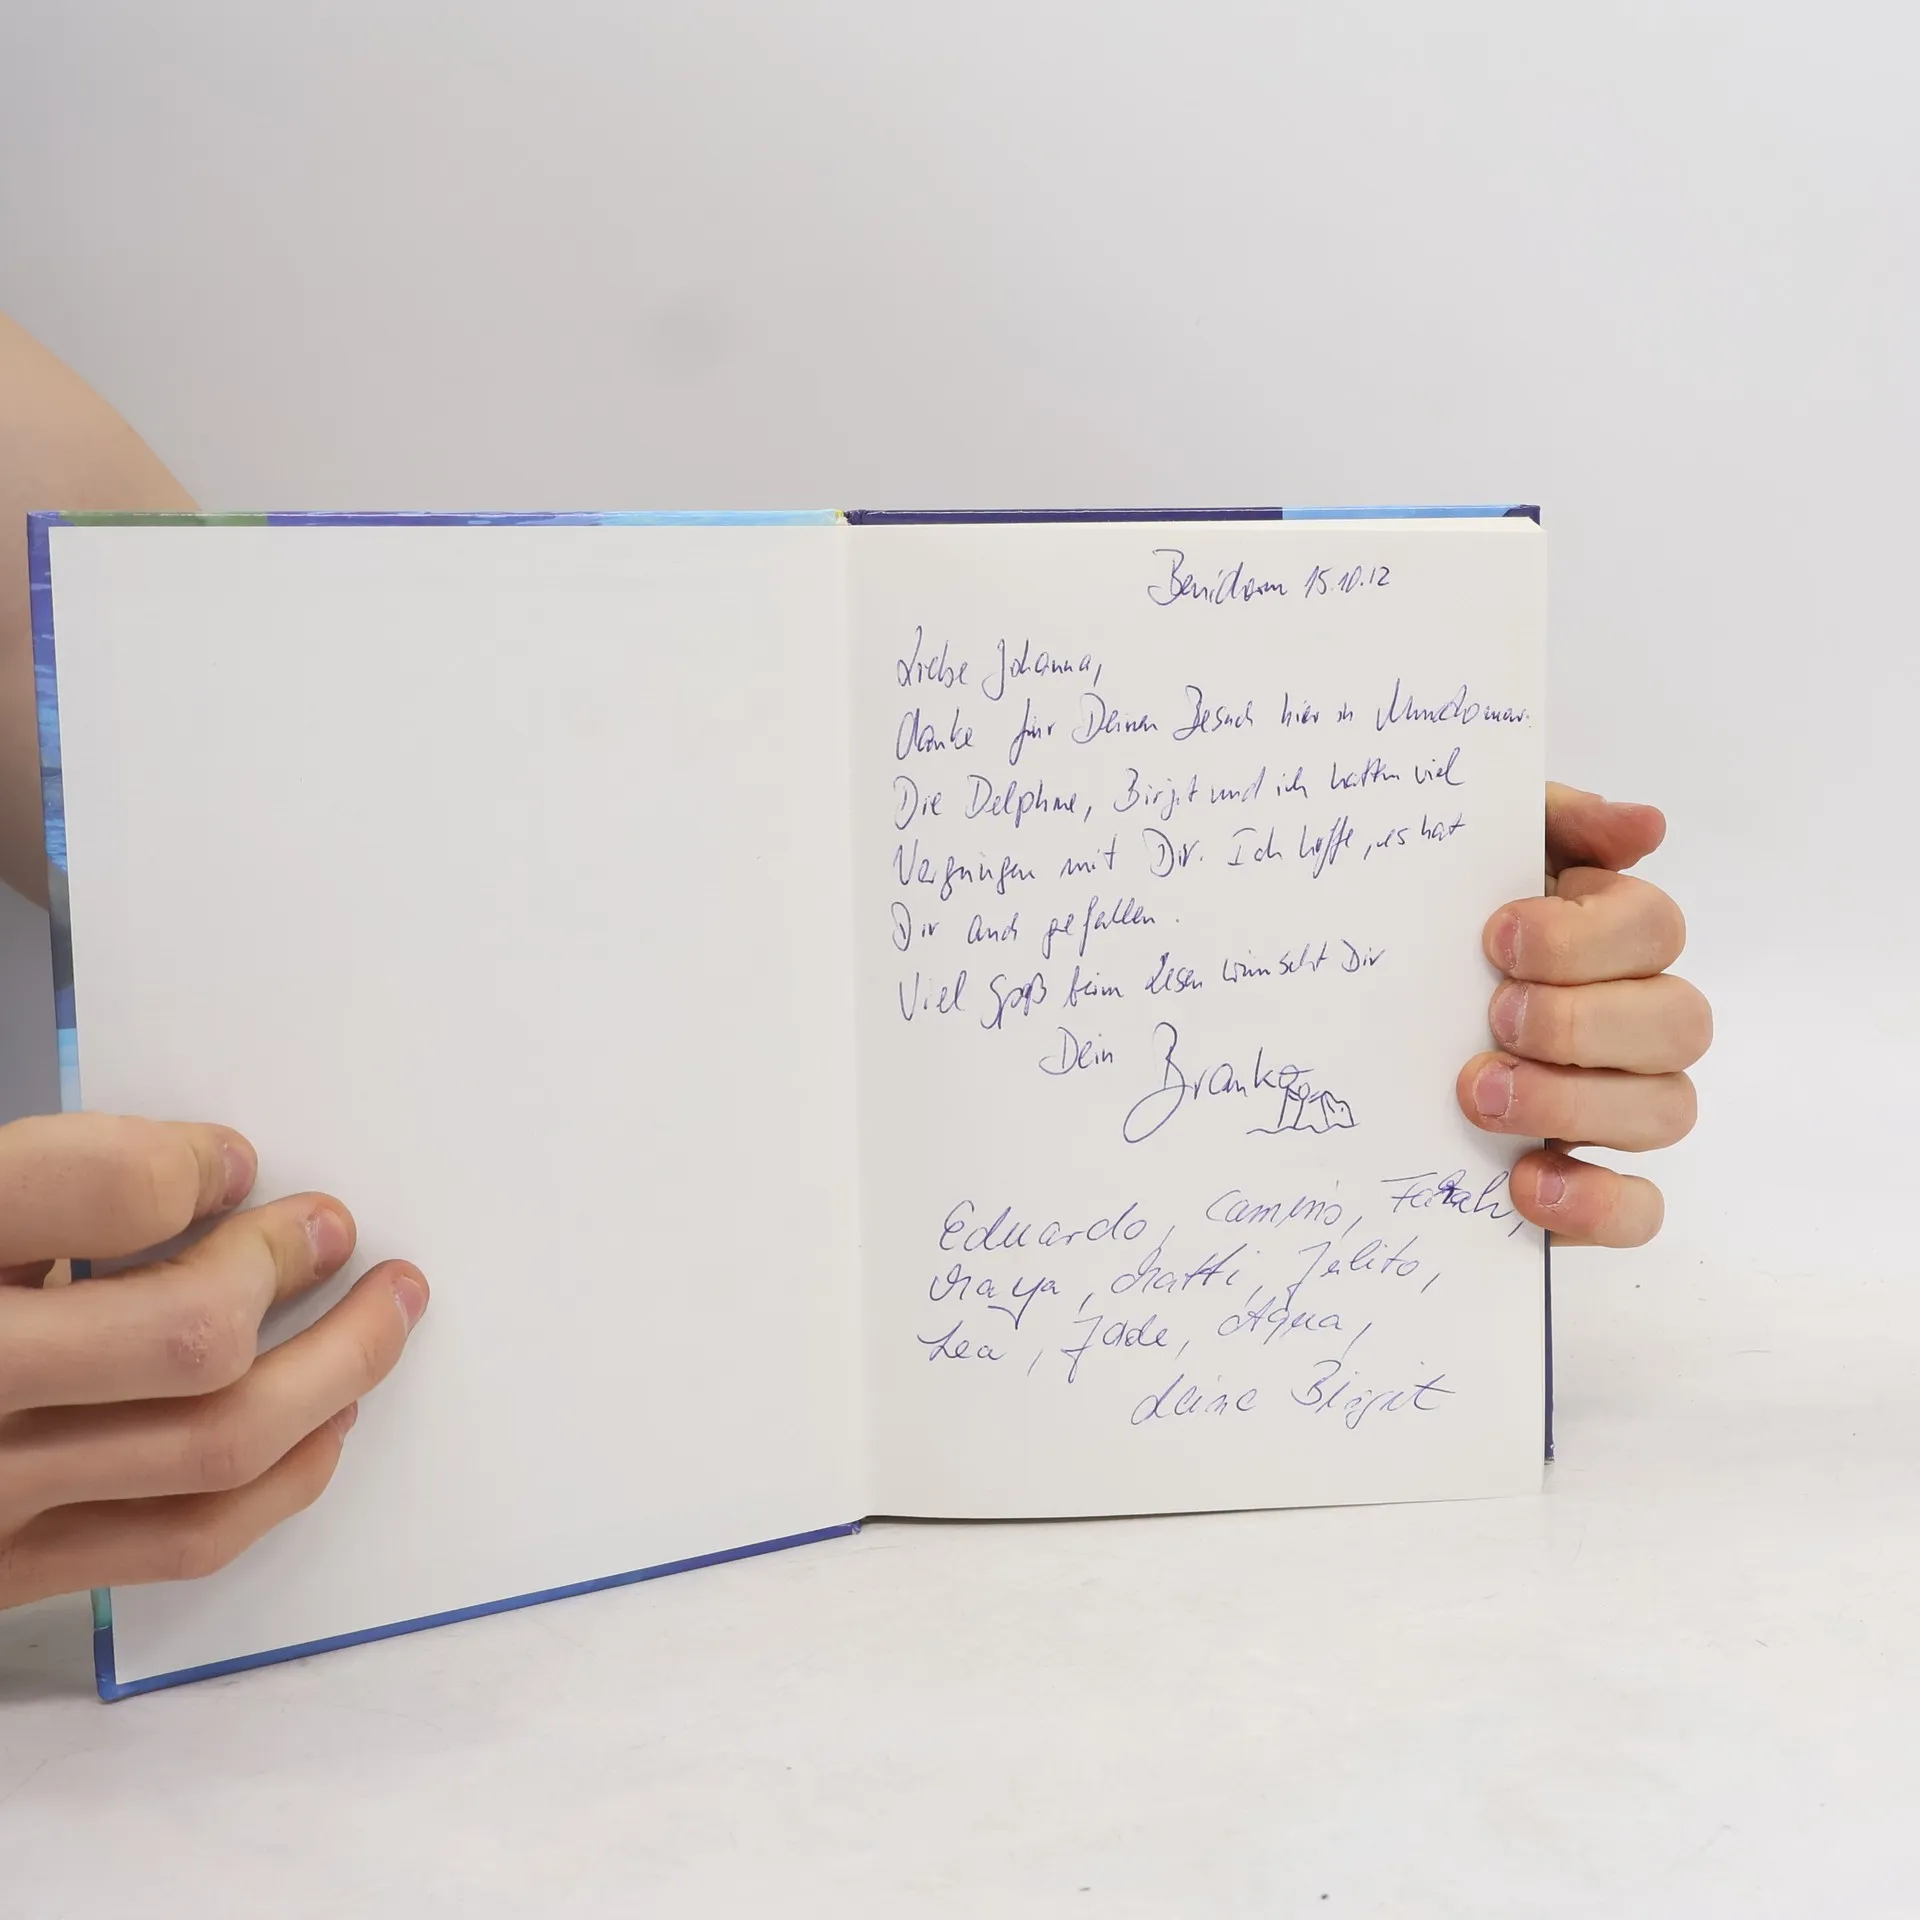 Benidorm 15.10.12
Liebe Johanna,
danke für Deinen Besuch hier in Mundomar.
Die Delphine, Birgit und ich hatten viel
Vergnügen mit Dir. Ich hoffe, es hat
Dir auch gefallen.
Viel Spaß beim Lesen wünscht Dir
Dein Branko
Eduardo, Farah,
Maya, Matti, Julito,
Lea, Jade, Aqua,
deine Birgit